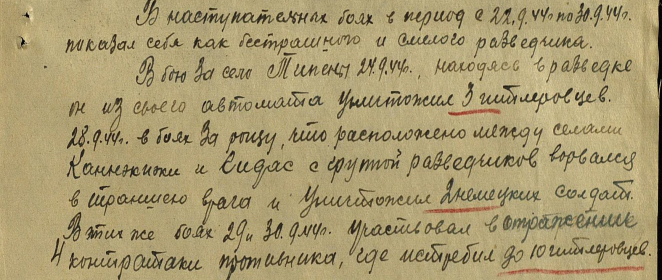 В наступательных боях в период с 22.9.44 по 30.9.44г.
показал себя как бестрашного и смелого разведчика.
В бою за село Типены 24.9.44г., находясь в разведке
он из своего автомата уничтожил 3 гитлеровцев.
28.9.44г. в боях за рощу, что расположено между селами
и Сидас с групой разведчиков ворвался
в траншею врага и уничтожил 2 немецких солдат.
В этих же боях 29 и 30.9.44г. участвовал в отражение
4 контратаки противника, где истребил до 10 гитлеровцев.